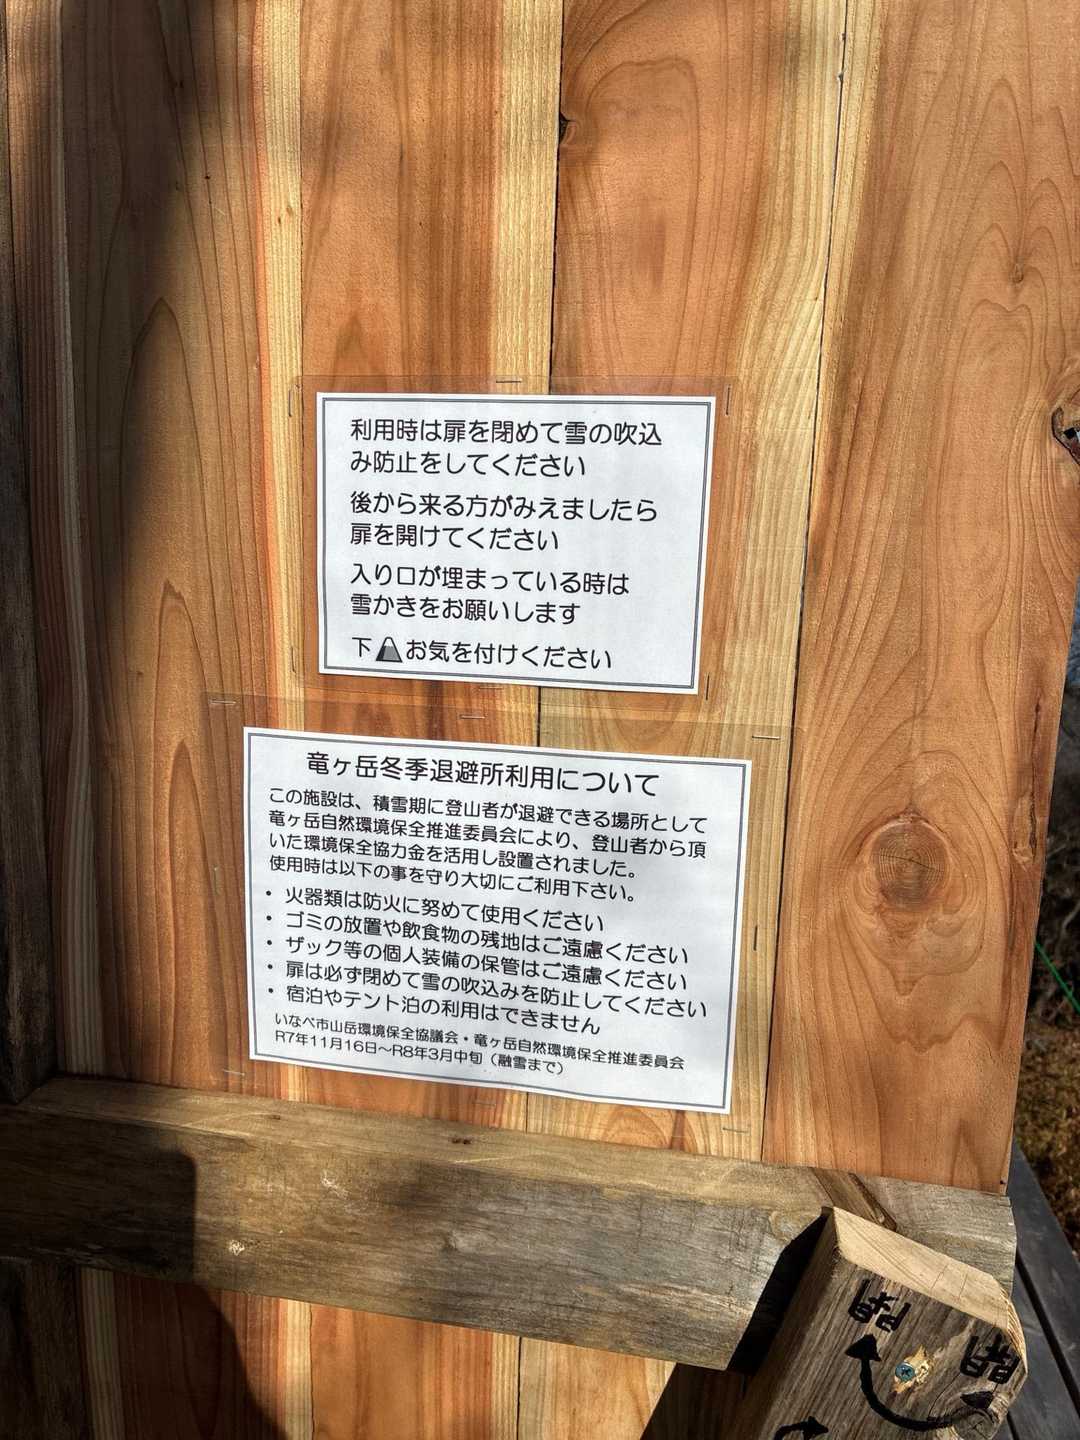 利用時は扉を閉めて雪の吹込
み防止をしてください
後から来る方がみえましたら
扉を開けてください
入り口が埋まっている時は
雪かきをお願いします
下お気を付けください
竜ヶ岳冬季退避所利用について
この施設は、積雪期に登山者が退避できる場所として
竜ヶ岳自然環境保全推進委員会により、登山者から頂
いた環境保全協力金を活用し設置されました。
使用時は以下の事を守り大切にご利用下さい。
・火器類は防火に努めて使用ください
・ゴミの放置や飲食物の残地はご遠慮ください
・ザック等の個人装備の保管はご遠慮ください
・扉は必ず閉めて雪の吹込みを防止してください
・宿泊やテント泊の利用はできません
いなべ市山岳環境保全協議会・竜ヶ岳自然環境保全推進委員会
R7年11月16日～R8年3月中旬（融雪まで）